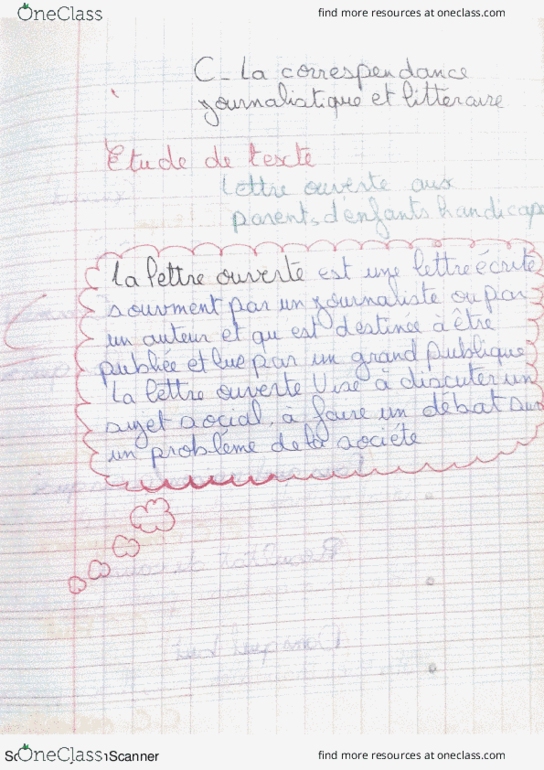 OneClass find more resources at oneclass.com
C- La correspendance
journalistique et litteraire
Etude de texte
Lettre ouverte aux
parents d'enfants handicapé
La lettre ouverte est une lettre écrite
souvment par un journaliste ou par
un auteur et qui est destinée à être
publiée et lue par un grand publique
La lettre ouverte vise à discuter un
sujet social, à faire un débat sur
un problème de la sociéte
OneClass Scanner find more resources at oneclass.com